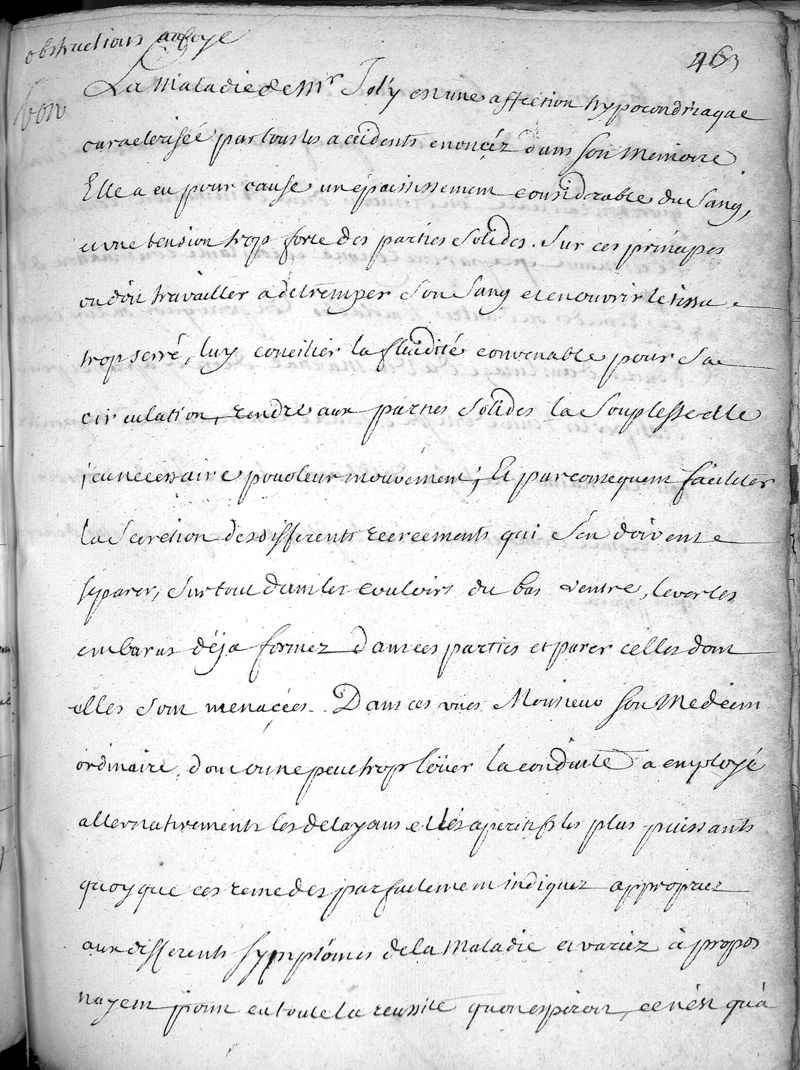 obstructions au foye
463
bon
La Maladie de Mr Joly est une affection hypocondriaque
caracterisée par tous les accidents enoncéz dans son Memoire
Elle a eu pour cause un épaississement considerable du sang,
et une tension trop forte des parties solides. Sur ces principes
on doit travailler a detremper son sang et en ouvrir le tissu
trop serré, luy concilier la fluidité convenable pour sa
circulation, rendre aux parties solides la souplesse et le
jeu necessaire pour leur mouvement; Et par consequent faciliter
la secretion des differents recrements qui s'en doivent
separer, sur tout dans les couloirs du bas ventre, lever les
embaras déja formez dans ces parties et parer celles dont
elles sont menacées. Dans ces vues Monsieur son Medecin
ordinaire, dont on ne peut trop loüer la conduite a employé
alternativement les delayans et les aperitifs les plus puissants
quoyque ces remedes parfaitement indiquez appropriez
aux differents symptômes de la Maladie et variez à propos
n'ayent point eu toute la reussite qu'on esperoit, ce n'est qu'à